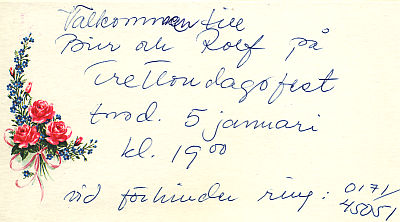 Välkommen till
Birr och Rolf på
Trettondagsfest
torsd. 5 januari
kl. 19⁰⁰
vid förhinder ring: 0171/
45051